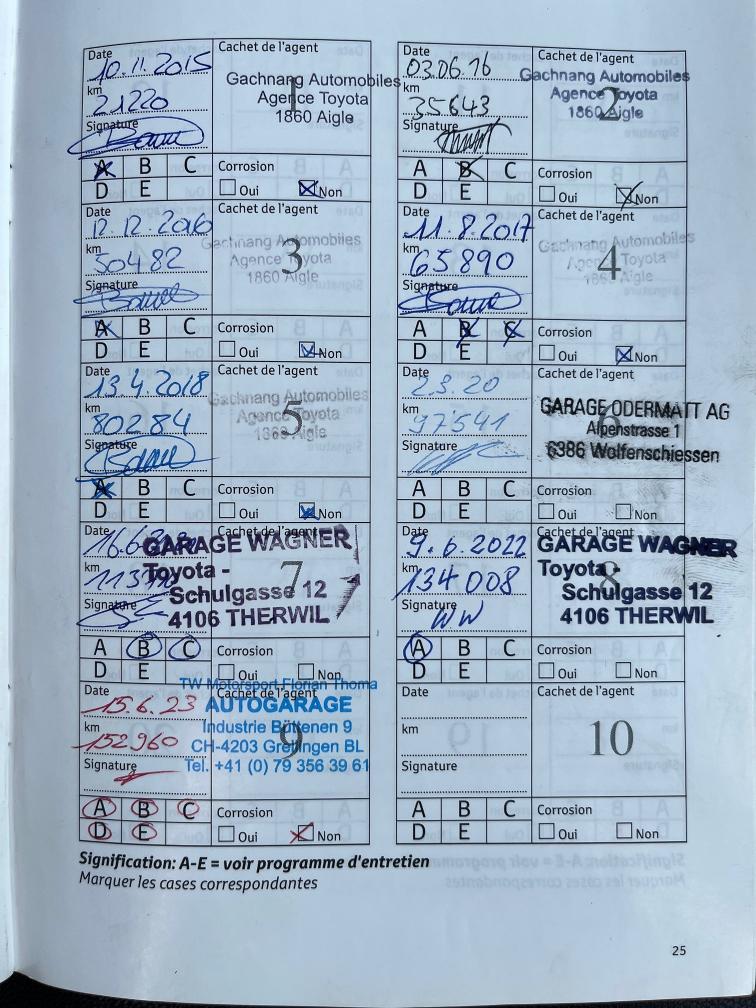 Date
10.11.2015
km
21220
Signature
Cachet de l'agent
1
Gachnang Automobiles
Agence Toyota
1860 Aigle
A B C
D E
Corrosion
Oui Non
Date
03.06.16
km
35643
Signature
Cachet de l'agent
2
Gachnang Automobiles
Agence Toyota
1860 Aigle
A B C
D E
Corrosion
Oui Non
Date
12.12.2016
km
50482
Signature
Cachet de l'agent
3
Gachnang Automobiles
Agence Toyota
1860 Aigle
A B C
D E
Corrosion
Oui Non
Date
11.8.2017
km
65890
Signature
Cachet de l'agent
4
Gachnang Automobiles
Agence Toyota
1860 Aigle
A B C
D E
Corrosion
Oui Non
Date
13.4.2018
km
80284
Signature
Cachet de l'agent
5
Gachnang Automobiles
Agence Toyota
1860 Aigle
A B C
D E
Corrosion
Oui Non
Date
2.3.20
km
97541
Signature
Cachet de l'agent
6
GARAGE ODERMATT AG
Alpenstrasse 1
6386 Wolfenschiessen
A B C
D E
Corrosion
Oui Non
Date
km
Signature
Cachet de l'agent
7
GARAGE WAGNER
Toyota -
Schulgasse 12
4106 THERWIL
A B C
D E
Corrosion
Oui Non
Date
9.6.2022
km
134008
Signature
WW
Cachet de l'agent
8
GARAGE WAGNER
Toyota -
Schulgasse 12
4106 THERWIL
A B C
D E
Corrosion
Oui Non
Date
15.6.23
km
152960
Signature
Cachet de l'agent
9
TW Motorsport Florian Thoma
AUTOGARAGE
Industrie Büttenen 9
CH-4203 Grellingen BL
Tel. +41 (0) 79 356 39 61
A B C
D E
Corrosion
Oui Non
Date
km
Signature
Cachet de l'agent
10
A B C
D E
Corrosion
Oui Non
Signification: A-E = voir programme d'entretien
Marquer les cases correspondantes
25